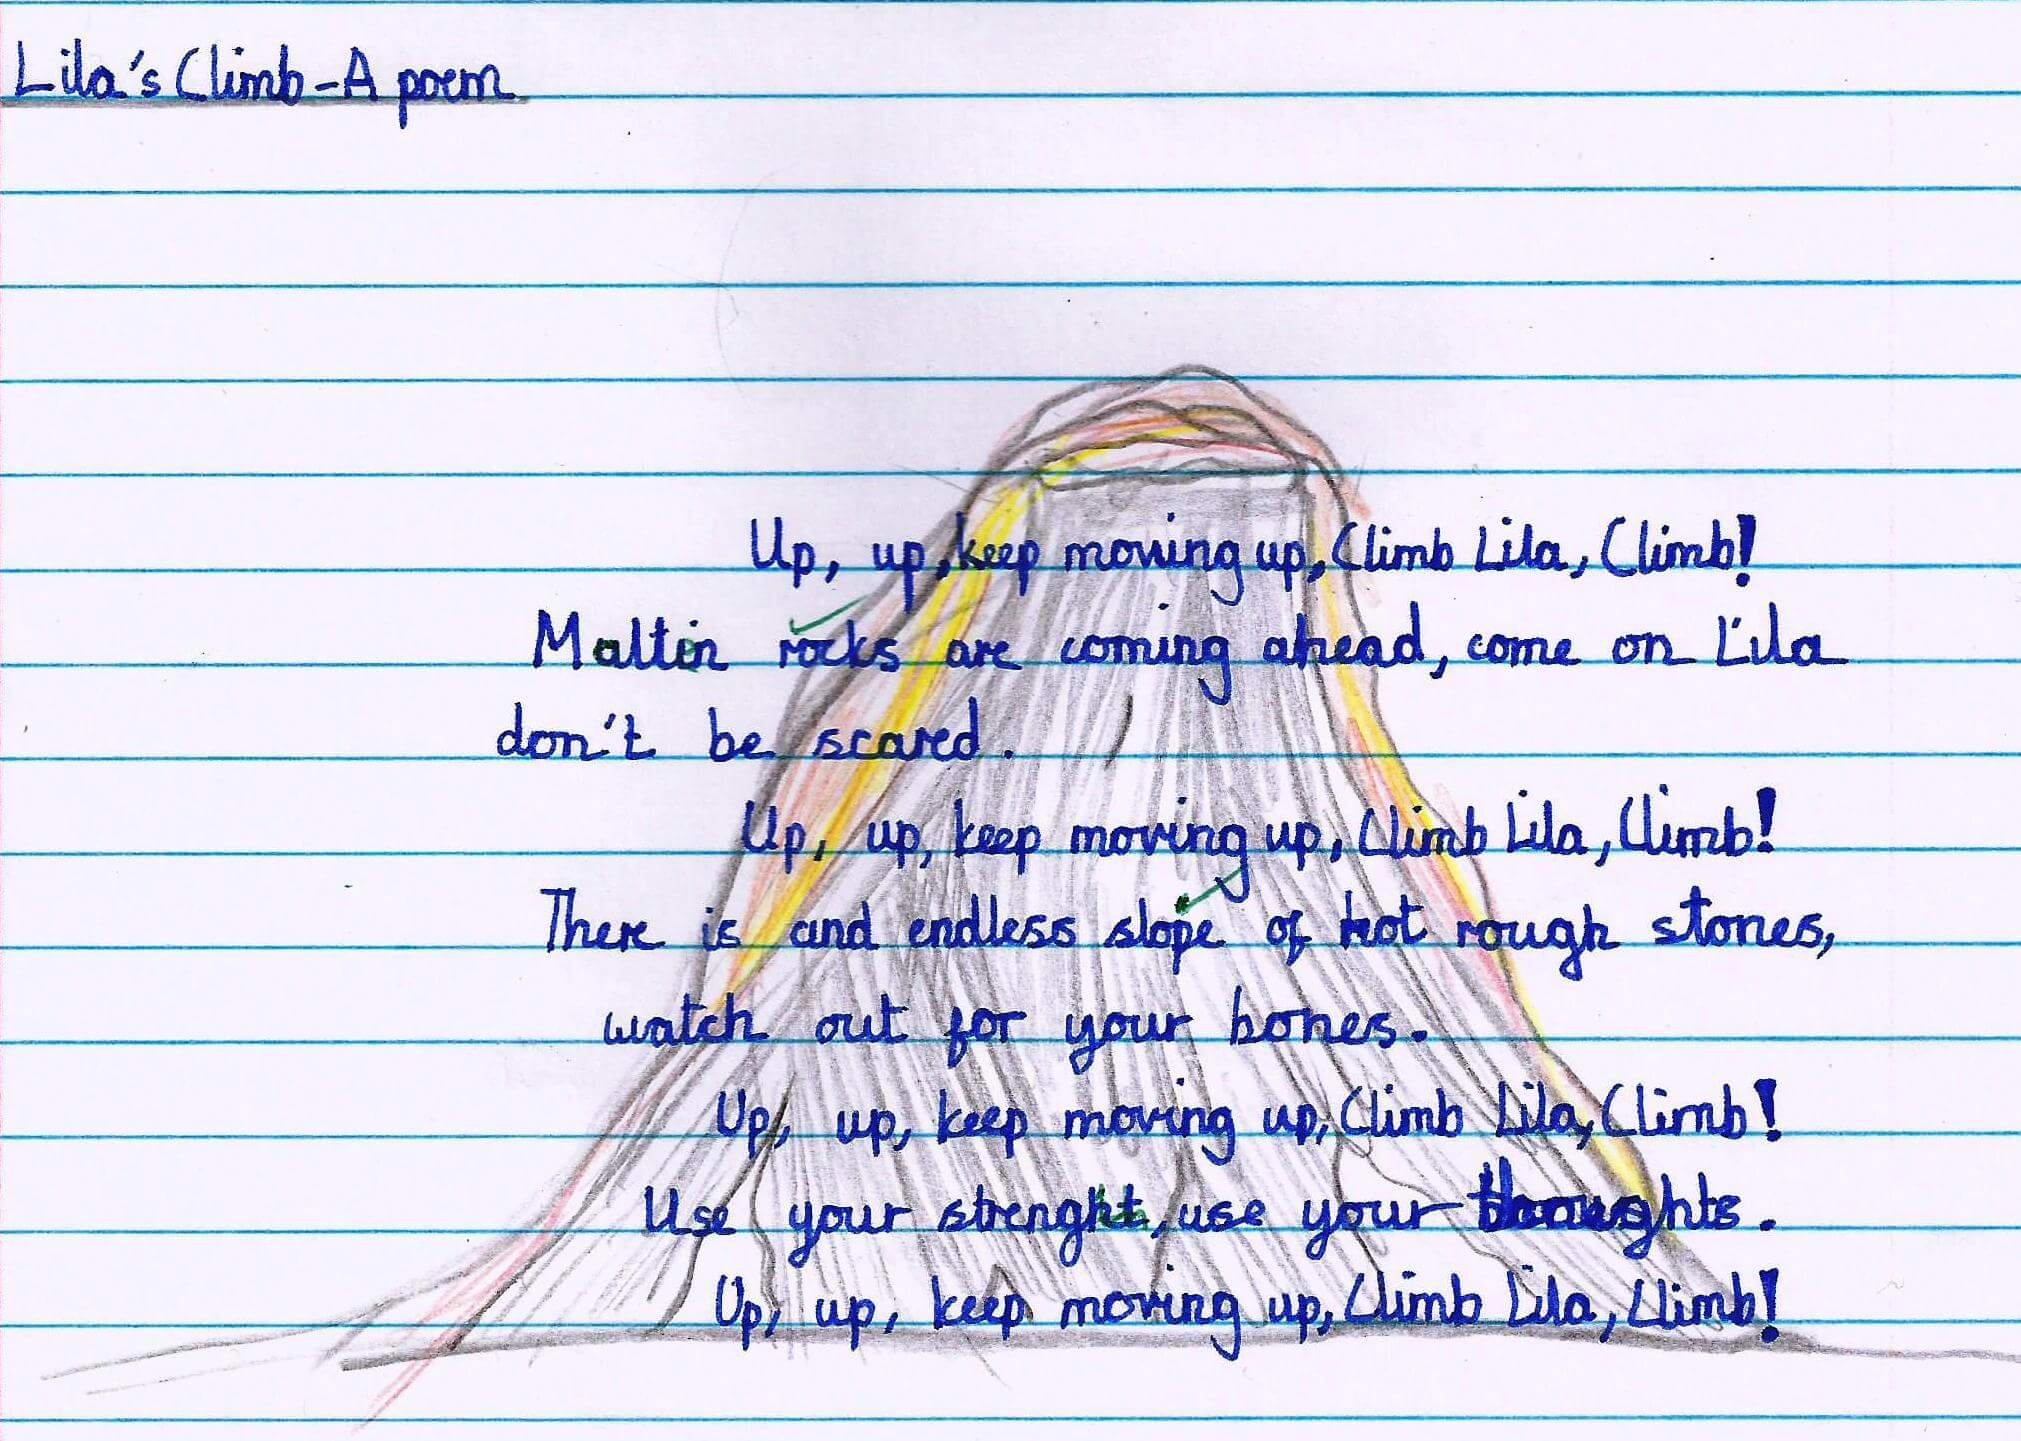 Lila's Climb-A poem
Up, up, keep moving up, Climb Lila, Climb!
Maltin rocks are coming ahead, come on Lila
don't be scared.
Up, up, keep moving up, Climb Lila, Climb!
There is and endless slope of hot rough stones,
watch out for your bones.
Up, up, keep moving up, Climb Lila, Climb!
Use your strenght, use your thoughts.
Up, up, keep moving up, Climb Lila, Climb!